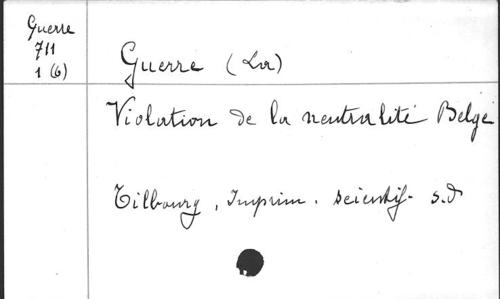 Guerre
711
1 (6)
Guerre (La)
Violation de la neutralité Belge
Tilbourg, Imprim. scientif. s.d